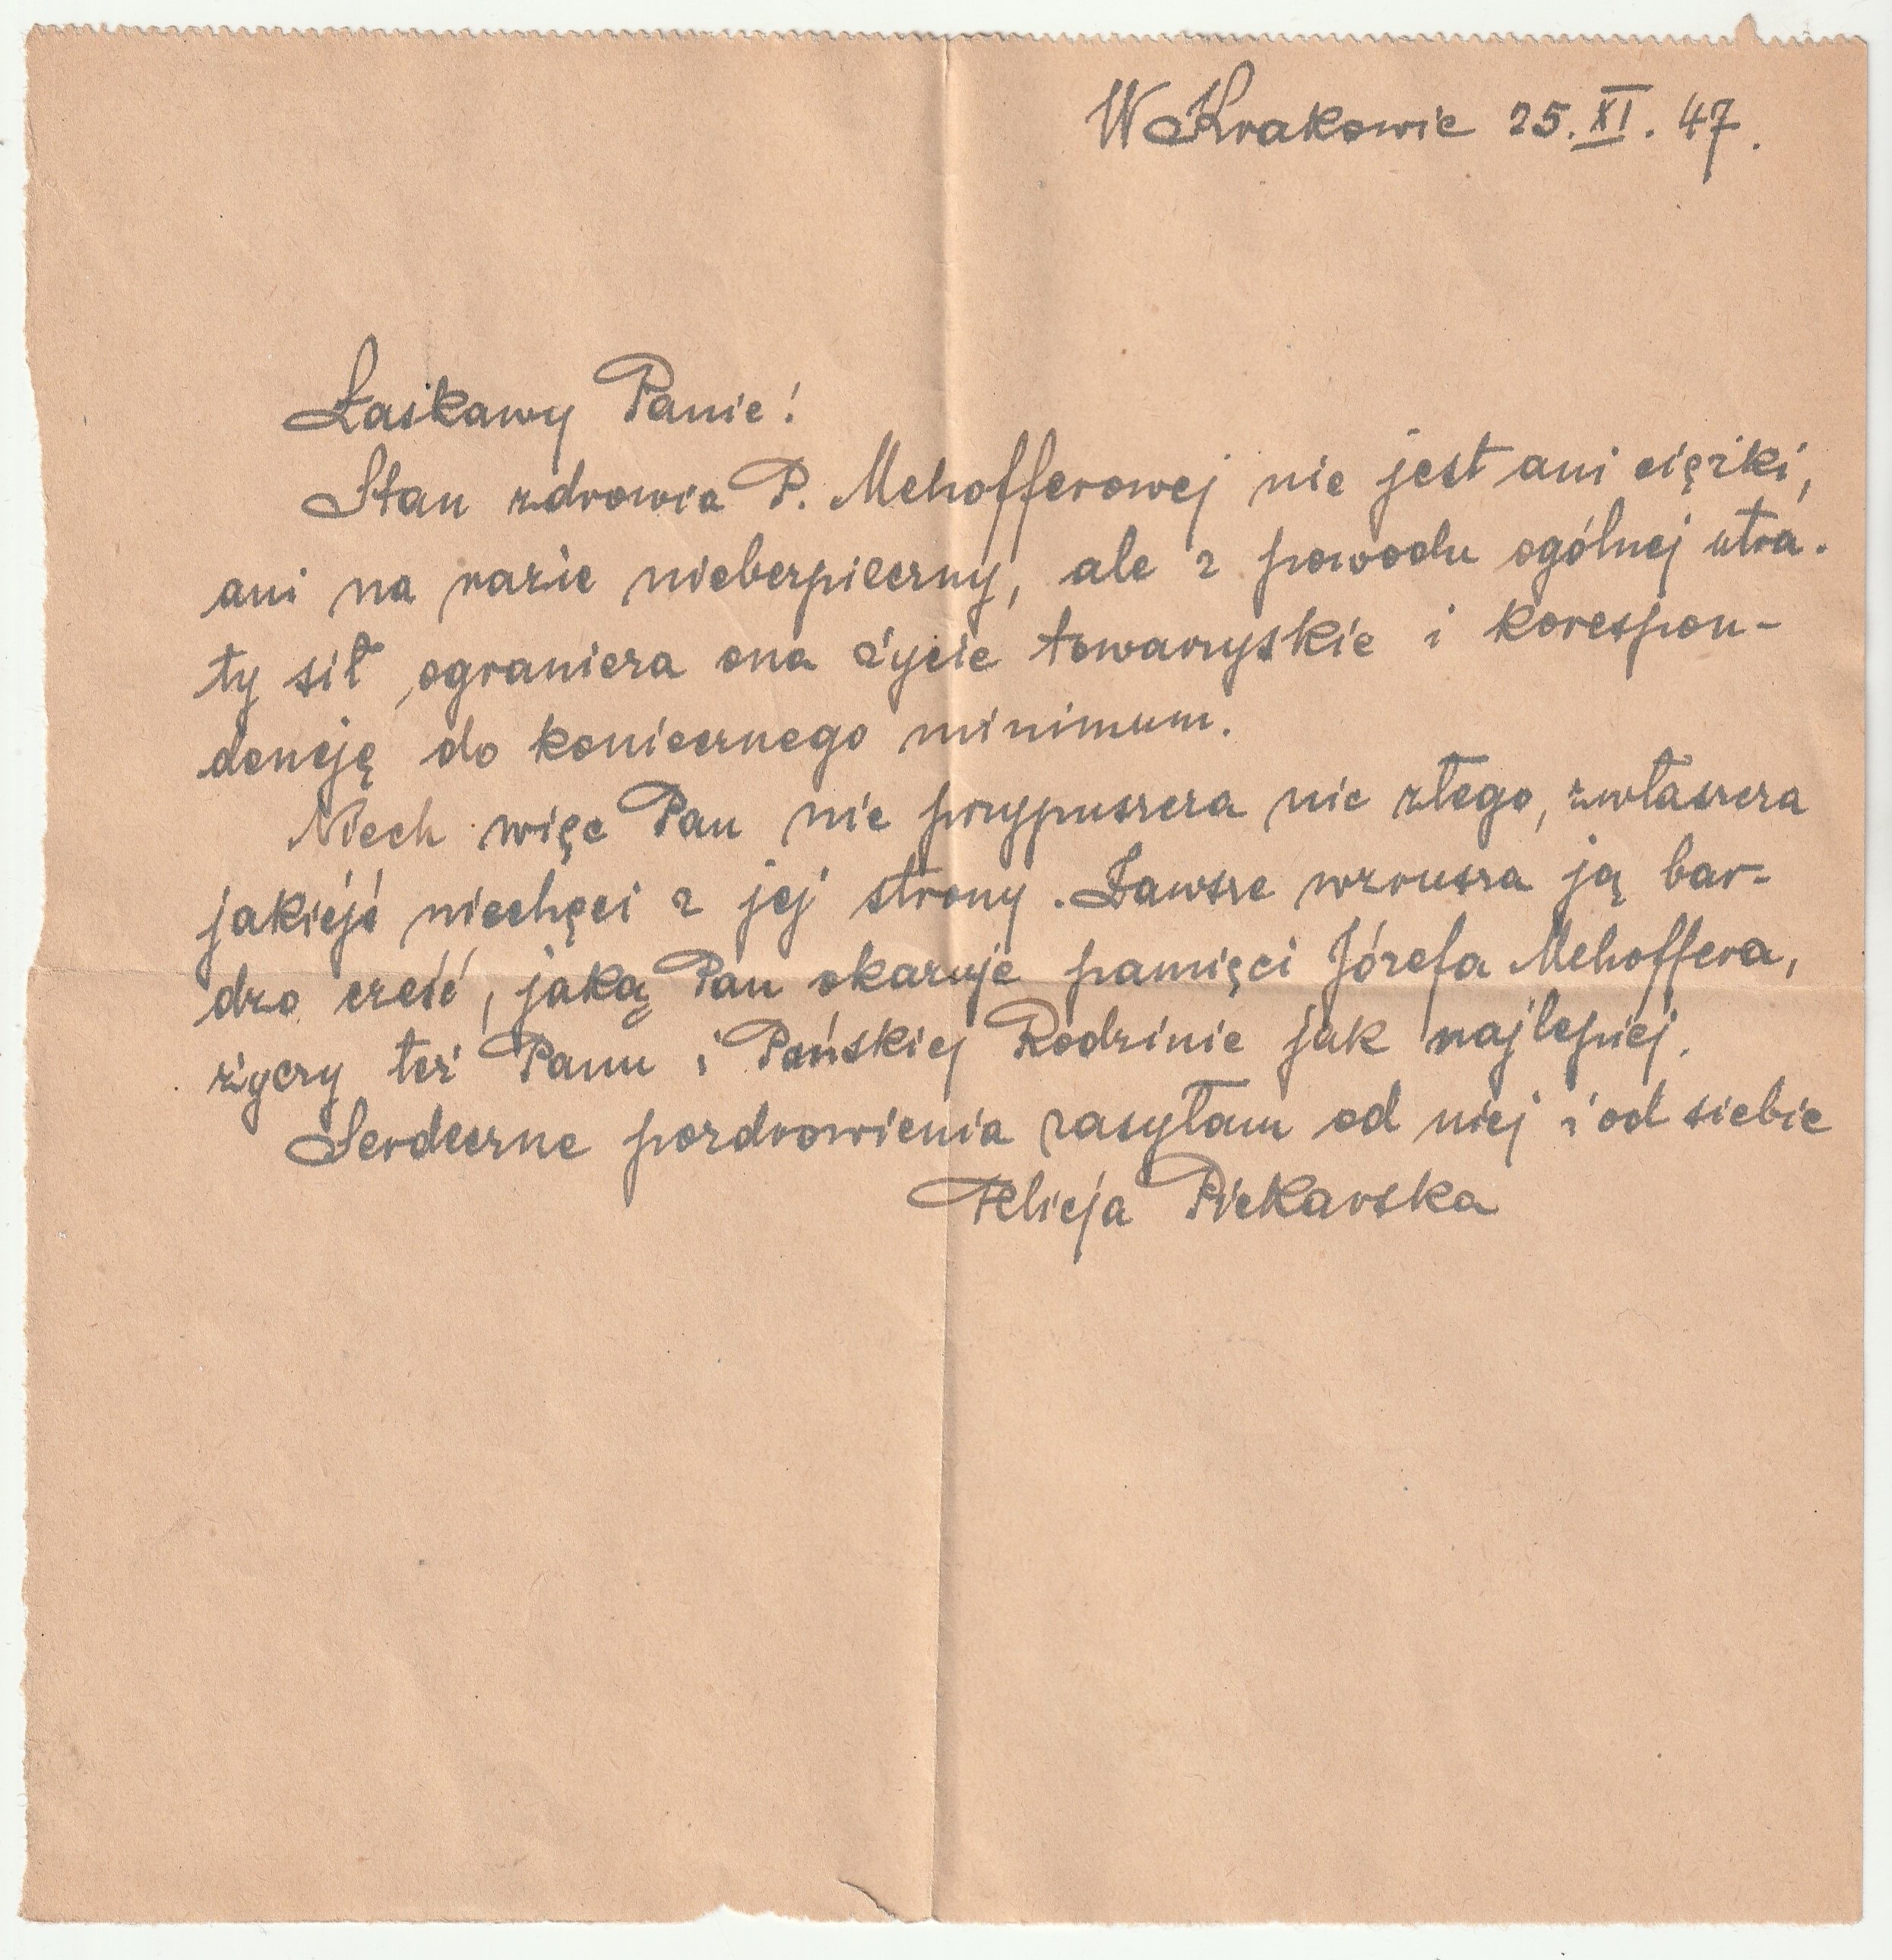 W Krakowie 25. XI. 47.
Łaskawy Panie!
Stan zdrowia P. Mehofferowej nie jest ani ciężki,
ani na razie niebezpieczny, ale z powodu ogólnej utra-
ty sił ogranicza ona życie towarzyskie i korespon-
dencję do koniecznego minimum.
Niech więc Pan nie przypuszcza nic złego, zwłaszcza
jakiejś niechęci z jej strony. Zawsze wzrusza ją bar-
dzo cześć, jaką Pan okazuje pamięci Józefa Mehoffera,
życzy też Panu i Pańskiej Rodzinie jak najlepiej.
Serdeczne pozdrowienia zasyłam od niej i od siebie
Alicja Piekarska